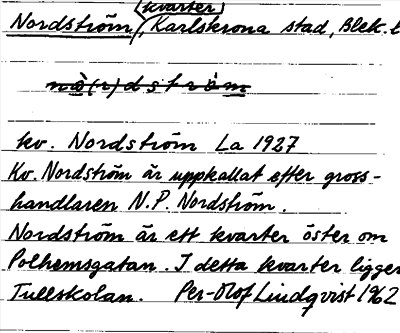 kvarter
Nordström, Karlskrona stad, Blek. l
nò(r)dstrèm
kv. Nordström La 1927
Kv. Nordström är uppkallat efter gross-
handlaren N.P. Nordström.
Nordström är ett kvarter öster om
Polhemsgatan. I detta kvarter ligger
Tullskolan. Per-Olof Lindqvist 1962